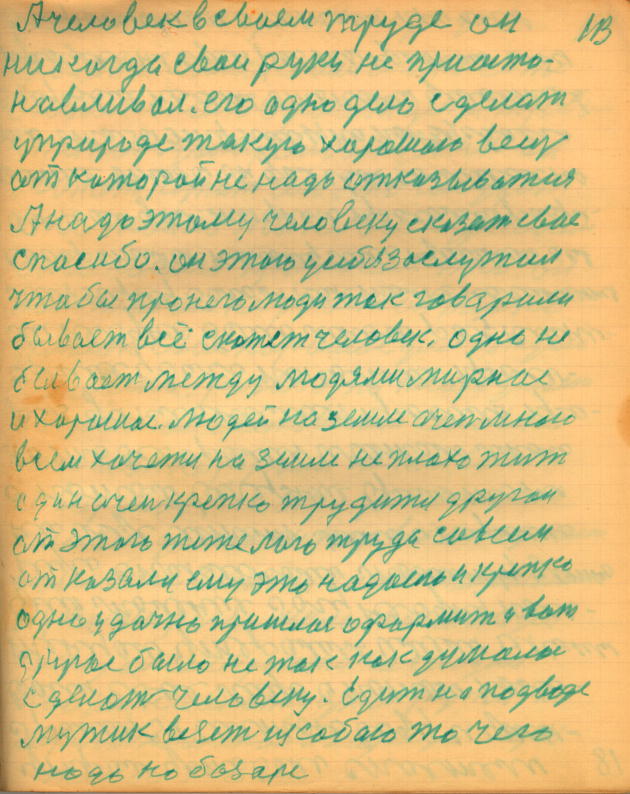 А человек в своем труде он 18
никогда свои руки не приоста-
навливал. его одно дело сделат
у природе такую хорошаю вещ
от каторой не надо отказыватся
А надо этому человеку сказат свае
спасибо. он этаго у себя заслужил
чтобы про него люди так говарили
бывает всё скажет человек. одно не
бывает между людями мирнае
и харошае. людей на земли очен много
всем хочется на земли не плохо жит
один очен крепко трудится другой
от этого тежелого труда совсем
отказался ему это надоело и крепко
одно удачно пришлос оформит а вот
другое было не так как думалос
сделат человеку. Едит на подводе
мужик везет из собою то чего
надо на базаре